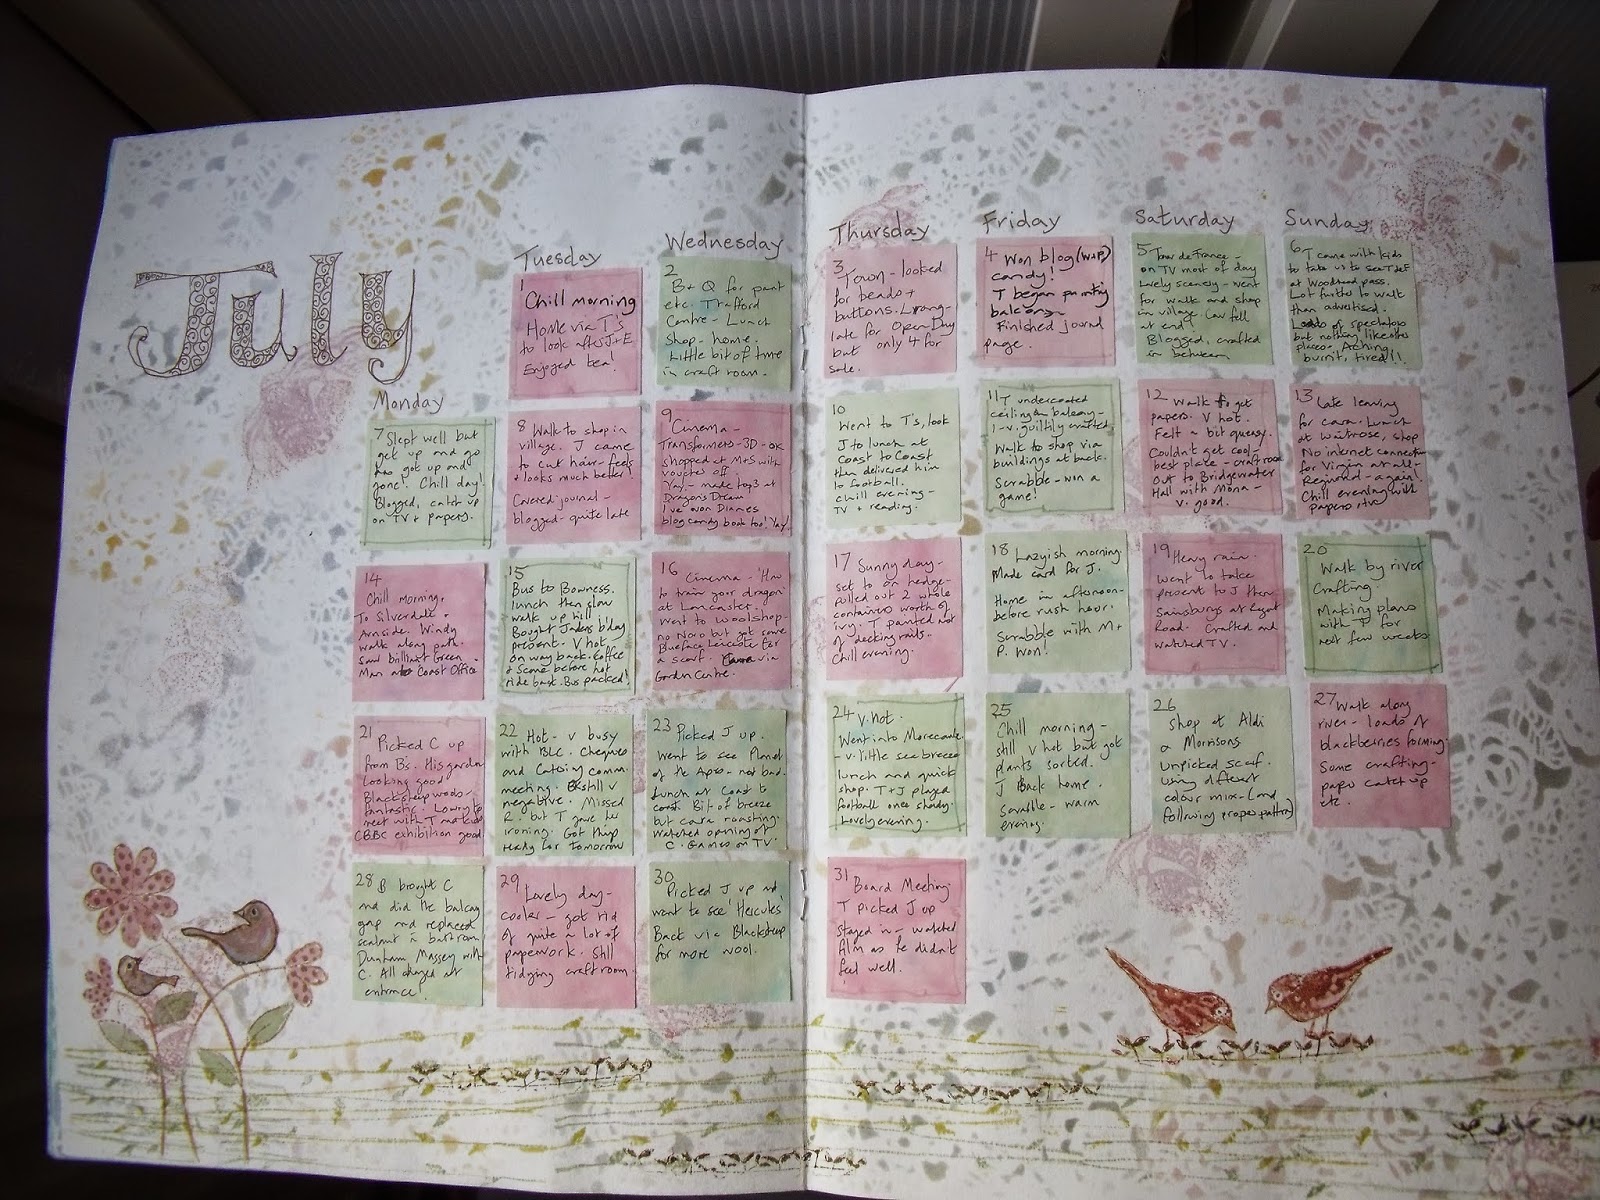 July
Monday
Tuesday
Wednesday
Thursday
Friday
Saturday
Sunday
1
Chill morning
Home via T's
to look after J+E
Enjoyed tea!
2
B+Q for paint
etc. Trafford
Centre - Lunch
shop - home.
Little bit of time
in craft room.
3 Town - looked
for beads +
buttons.
late for Open Day
but only 4 for
sale.
4 Won blog (WOYP)
candy!
T began painting
balcony
Finished journal
page.
5 Tour de France -
on TV most of day
Lovely scenery - went
for walk and shop
in village. Cav fell
at end!
Blogged, crafted
in between
6 T came with kids
to take us to see TdeF
at Woodhead pass.
Lot further to walk
than advertised.
Loads of spectators
but nothing like other
places. Aching,
burnt, tired!!
7 Slept well but
get up and go
has got up and
gone! Chill day!
Blogged, catch up
on TV + papers.
8 Walk to shop in
village. J came
to cut hair - feels
+ looks much better!
Covered journal -
blogged - quite late
9
Cinema -
Transformers - 3D - OK
shopped at M+S with
voucher off.
Yay - made top 3 at
Dragons Dream
I've won Dianes
blog candy book too! Yay!
10
Went to T's, took
J to lunch at
Coast to Coast
then delivered him
to football.
Chill evening -
TV + reading.
11 T undercoated
ceiling on balcony -
I - v. guiltily crafted.
Walk to shop via
buildings at back.
Scrabble - won a
game!
12 Walk to get
papers. V hot.
Felt a bit queasy.
Couldn't get cool -
best place - craft room
Out to Bridgewater
Hall with Mona -
v. good.
13 Late leaving
for cara. Lunch
at Waitrose, shop
No internet connection
for Virgin at all -
Regained - again!
Chill evening with
papers + TV
14
Chill morning.
To Silverdale +
Arnside. Windy
walk along path.
Saw brilliant Green
Man at Coast Office
15
Bus to Bowness.
lunch then slow
walk up hill.
Bought Jades b'day
present. V hot
on way back. Coffee
+ scone before hot
ride back. Bus packed!
16
Cinema - 'How
to train your dragon'
at Lancaster.
Went to woolshop -
no Noro but got some
Blueface Leicester for
a scarf. Cara via
Garden Centre.
17 Sunny day -
set to on hedge -
pulled out 2 whole
containers worth of
ivy. T painted most
of decking rails.
Chill evening.
18 Lazyish morning.
Made card for J.
Home in afternoon -
before rush hour.
Scrabble with M+
P. Won!
19 Heavy rain.
Went to take
present to J then
Sainsburys at Regent
Road. Crafted and
watched TV.
20
Walk by river
Crafting.
Making plans
with T for
next few weeks
21
Picked C up
from B's. His garden
looking good
Blacksteep wools -
fantastic. Lowry to
meet with T mat
CBBC exhibition good
22 Hot - v busy
with BLC. Cheques
and Catering comm.
meeting. Still v
negative. Missed
R. but T gave her
ironing. Got things
ready for tomorrow
23 Picked J up.
Went to see Planet
of the Apes - not bad.
Lunch at Coast to
Coast. Bit of breeze
but cara roasting.
Watched opening of
C. Games on TV.
24 V. hot.
Went into Morecambe
- v. little sea breeze
lunch and quick
shop. T+J played
football once shady.
Lovely evening.
25
Chill morning -
still v hot but got
plants sorted.
J back home.
Scrabble - warm
evening.
26
Shop at Aldi
+ Morrisons
Unpicked scarf.
using different
colour mix - (and
following proper pattern)
27 Walk along
river - loads of
blackberries forming.
Some crafting -
paper catch up
etc.
28 B brought C
and did the balcony
gap and replaced
sealant in bathroom
Dunham Massey with
C. All changed at
entrance!
29 Lovely day -
cooler - got rid
of quite a lot of
paperwork. Still
tidying craft room.
30
Picked J up and
went to see 'Hercules'
Back via Blacksteep
for more wool.
31
Board Meeting.
T picked J up
Stayed in - watched
film as he didn't
feel well.